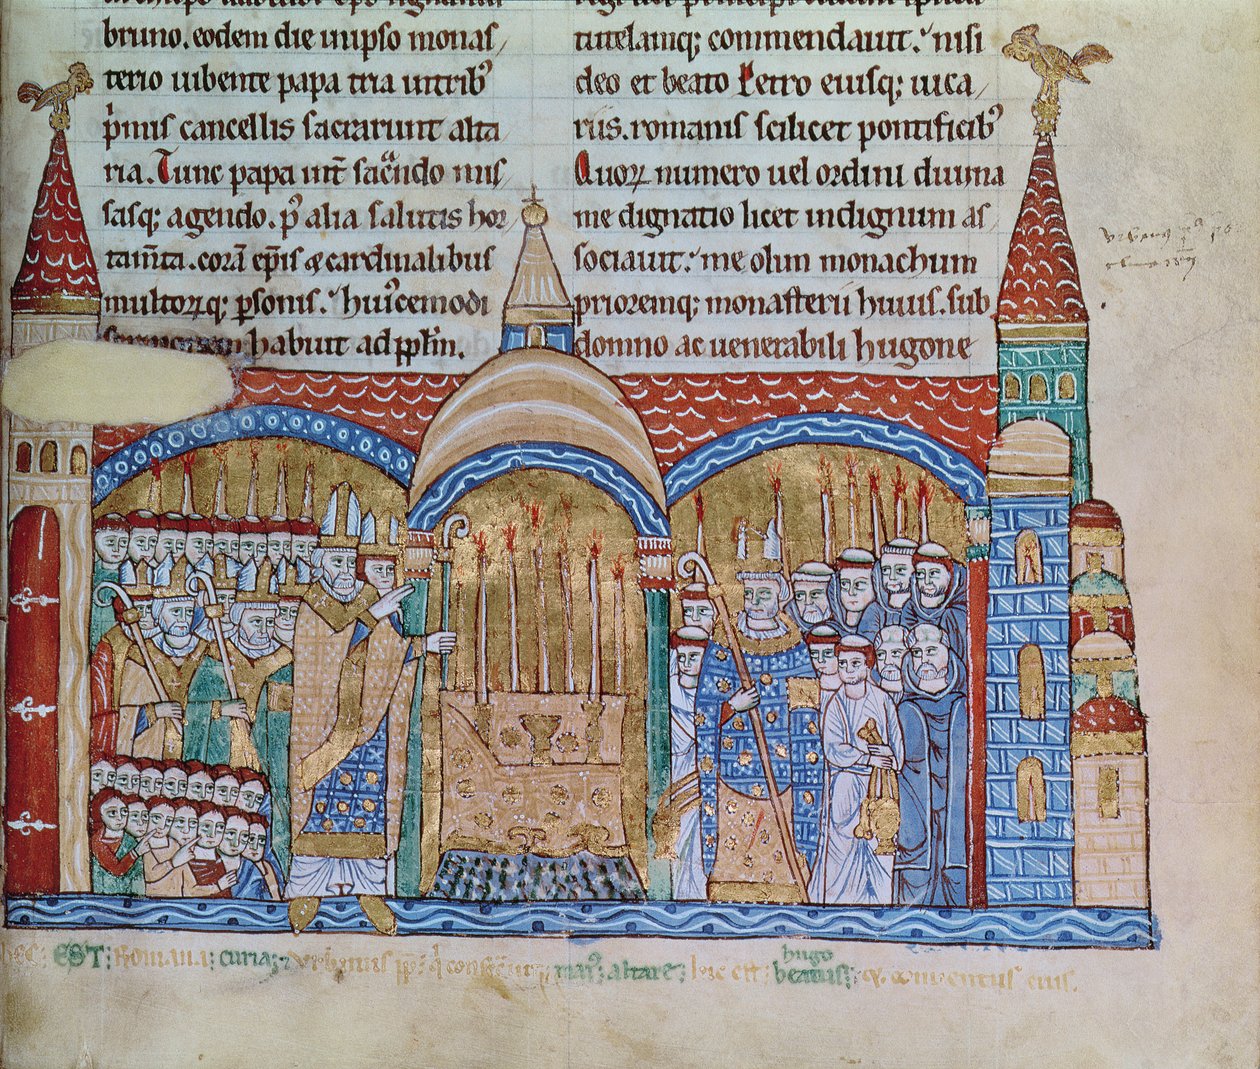 bruno. eodem die in ipso monas
terio iubente papa tria in tribꝰ
pͥmis cancellis sacrarunt alta
ria. Tunc papa int̄ sac̄ndo mis
sasq; agendo. pꝰ alia salutis hor
tam̄ta. corā ep̄is ⁊ cardinalibus
multorꝝq; ꝑsonis. huiꝰcemodi
habuit ad ppl̄m.
tutelamq; commendauit. nisi
deo et beato Petro eiusq; uica
riis. romanis scilicet pontificibꝰ
Quoꝝ numero uel ordini diuina
me dignatio licet indignum as
sociauit. me olim monachum
prioremq; monasterii huius. sub
domno ac uenerabili hugone
EST: Romana: curia: urbanus pp̄ altare: hic est: hugo beatus: ⁊ conuentus eius.